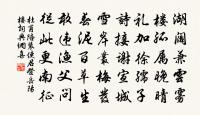 湖闊兼雲霧
樓孤屬晚晴
禮加徐孺子
詩接謝宣城
雪岸叢梅發
春泥百草生
敢違漁父問
從此更南征
杜甫陪裴使君登岳陽
樓詞典網